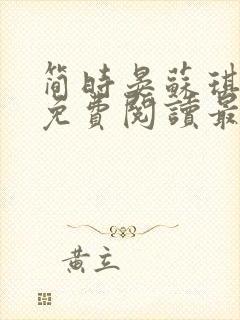 简時晏蘇琪
免費閱讀最
黃立